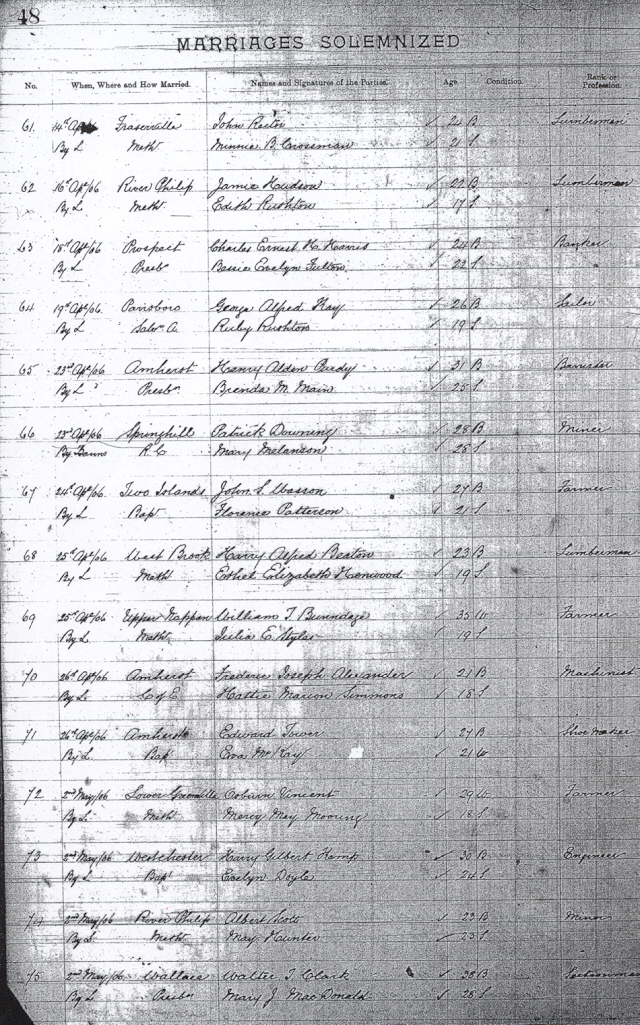 48
MARRIAGES SOLEMNIZED
No. When, Where and How Married. Names and Signatures of the Parties. Age Condition. Rank or Profession.
61. 14th Fraserville John Rector 24 B Lumberman
By L Meth Minnie B Crossman 21 S
62 16th Apl/06 River Philip Jamie Hudson 22 B Lumberman
By L. Meth Edith Rushton 17 S
63 18th Apl/06 Prospect Charles Ernest H. Harris 24 B Banker
By L Presbn Bessie Evelyn Fulton 22 S
64 19th Apl/06. Parrsboro George Alfred Kay 26 B
By L Salvn A Ruby Rushton 19 S
65 23rd Apl/06 Amherst Henry Alden Purdy 31 B Barrister
By L Presbn Brenda M. Main 25 S
66 23rd Apl/06 Springhill Patrick Downing 28 B Miner
By Banns R. C Mary Melanson S
67 24th Apl/06. Two Islands John S. Wasson 27 B Farmer
By L Bapt Florence Patterson 21 S
68 25th Apl/06 West Brook Harry Alfred Beaton 23 B Lumberman
By L Meth Ethel Elizabeth Henwood 19 S
69 25th Apl/06 Upper Nappan William T. Brundage 35 W Farmer
By L Meth Julia E Styles 19 S
70 26th Apl/06 Amherst Frederic Joseph Alexander 21 B Machinist
By L. C of E Hattie Marion Simmons 18 S
71 26th Apl/06 Amherst Edward Tower 27 B Shoe maker
By L Bap Eva McKay 21 W
72 2nd May/06 Lower Greenville Osburn Vincent 29 W Farmer
By L Meth Mercy May Mooring 18 S
73 2nd May/06 Westchester Harry Gilbert Kamp 30 B Engineer
By L Bapt Evelyn Doyle 24 S
74 2nd May/06 River Philip Albert Scott 23 B Minor
By L. Meth May Hunter 23 S
75 2nd May/06 Wallace Walter T. Clark 38 B Sectionman
By L Presbn Mary J. MacDonald 28 S